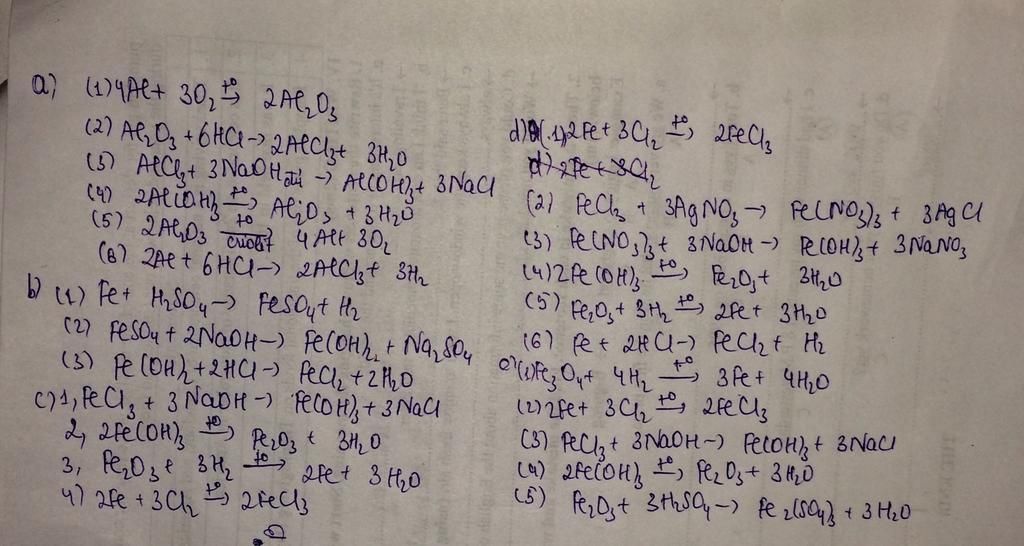 a) (1) 4Al + 3O₂ →(t⁰) 2Al₂O₃
(2) Al₂O₃ + 6HCl → 2AlCl₃ + 3H₂O
(3) AlCl₃ + 3NaOH → Al(OH)₃ + 3NaCl
(4) 2Al(OH)₃ →(t⁰) Al₂O₃ + 3H₂O
(5) 2Al₂O₃ →(t⁰) 4Al + 3O₂
(6) 2Al + 6HCl → 2AlCl₃ + 3H₂
b) (1) Fe + H₂SO₄ → FeSO₄ + H₂
(2) FeSO₄ + 2NaOH → Fe(OH)₂ + Na₂SO₄
(3) Fe(OH)₂ + 2HCl → FeCl₂ + 2H₂O
c) 1, FeCl₃ + 3NaOH → Fe(OH)₃ + 3NaCl
2, 2Fe(OH)₃ →(t⁰) Fe₂O₃ + 3H₂O
3, Fe₂O₃ + 3H₂ →(t⁰) 2Fe + 3H₂O
4) 2Fe + 3Cl₂ →(t⁰) 2FeCl₃
d) (1) 2Fe + 3Cl₂ →(t⁰) 2FeCl₃
d) 2Fe + 3Cl₂
(2) FeCl₃ + 3AgNO₃ → Fe(NO₃)₃ + 3AgCl
(3) Fe(NO₃)₃ + 3NaOH → Fe(OH)₃ + 3NaNO₃
(4) 2Fe(OH)₃ →(t⁰) Fe₂O₃ + 3H₂O
(5) Fe₂O₃ + 3H₂ →(t⁰) 2Fe + 3H₂O
(6) Fe + 2HCl → FeCl₂ + H₂
e) (1) Fe₃O₄ + 4H₂ →(t⁰) 3Fe + 4H₂O
(2) 2Fe + 3Cl₂ →(t⁰) 2FeCl₃
(3) FeCl₃ + 3NaOH → Fe(OH)₃ + 3NaCl
(4) 2Fe(OH)₃ →(t⁰) Fe₂O₃ + 3H₂O
(5) Fe₂O₃ + 3H₂SO₄ → Fe₂(SO₄)₃ + 3H₂O